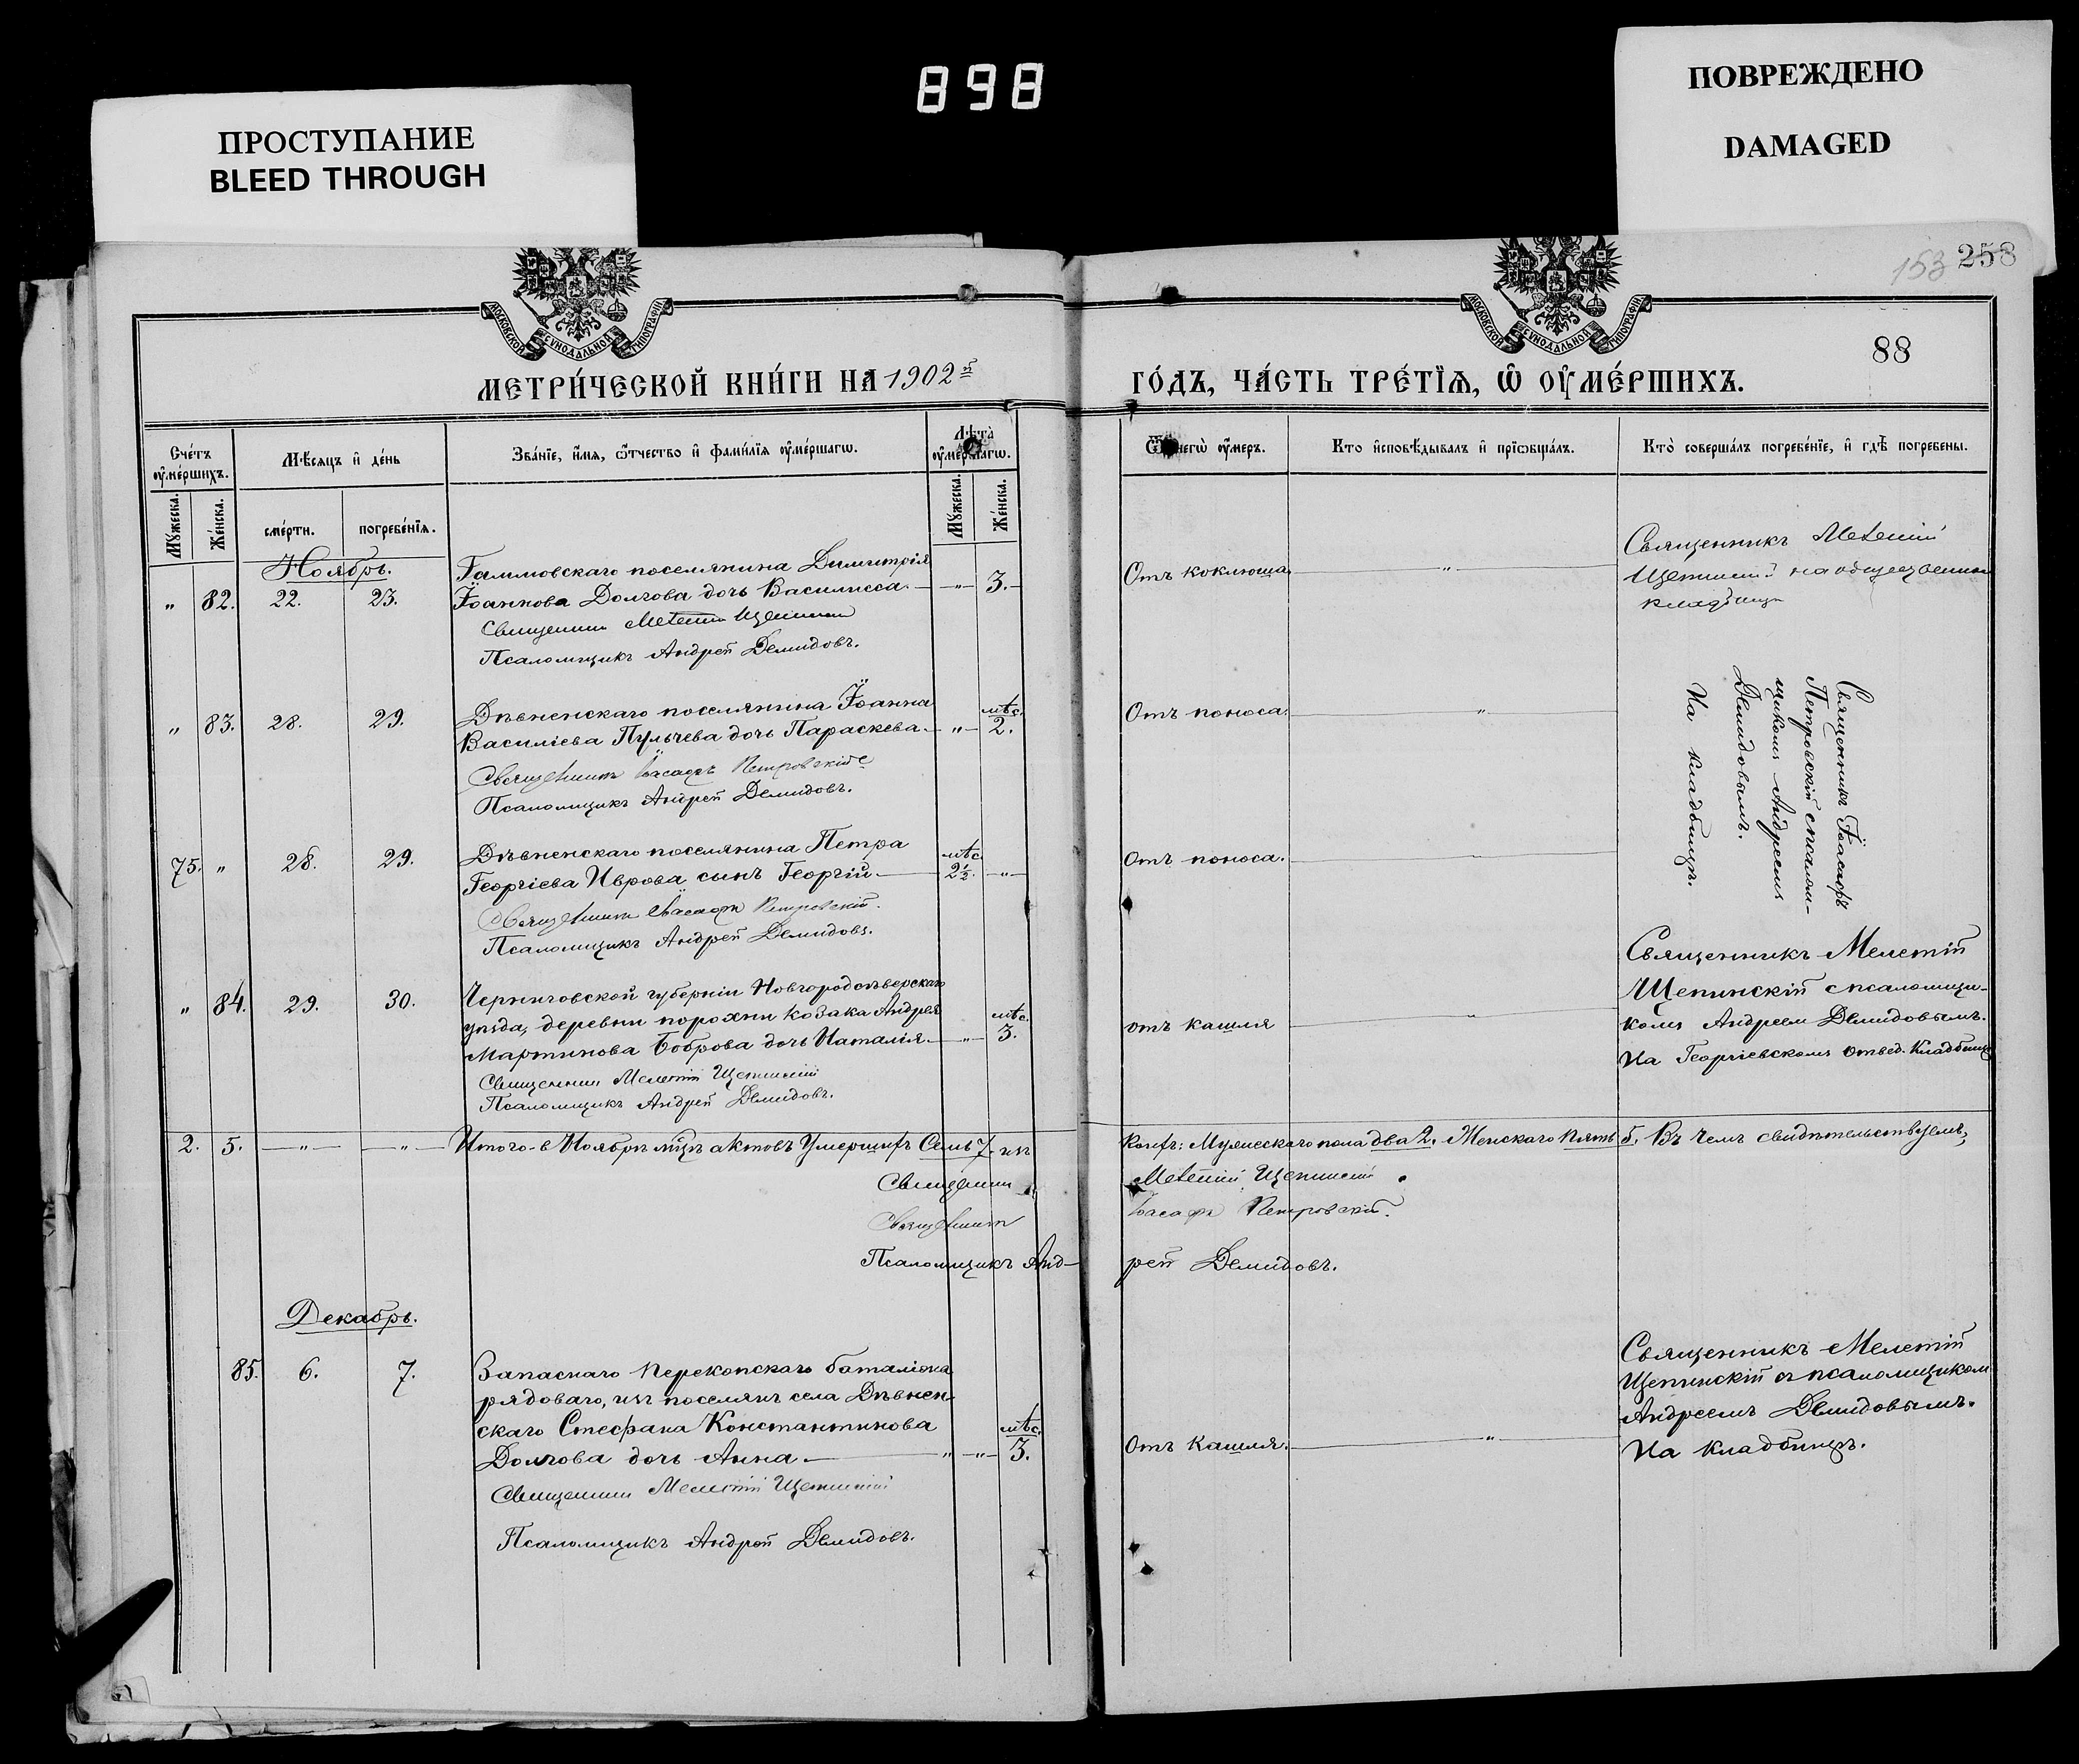 898
ПРОСТУПАНИЕ
BLEED THROUGH
ПОВРЕЖДЕНО
DAMAGED
153 258
88
МОСКОВСКОЙ СѴНОДАЛЬНОЙ ТИПОГРАФІИ
МОСКОВСКОЙ СѴНОДАЛЬНОЙ ТИПОГРАФІИ
МЕТРИ́ЧЕСКОЙ КНИ́ГИ НА 1902й
ГО́ДЪ, ЧА́СТЬ ТРЕ́ТЇѦ, Ѡ҆ ОУ҆МЕ́РШИХЪ.
Сче́тъ оу҆ме́ршихъ.
Мꙋжеска.
Же́нска.
Мѣ́сяцъ и҆ де́нь
сме́рти.
погребе́нїѧ.
Зва́нїе, и҆́мѧ, ѻ҆́тчество и҆ фами́лїѧ оу҆ме́ршагѡ.
Лѣта̀ оу҆ме́ршагѡ.
Мꙋжеска.
Же́нска.
Ѿ чегѡ̀ оу҆́меръ.
Кто и҆сповѣ́дывалъ и҆ прїѡбща́лъ.
Кто̀ соверша́лъ погребе́нїе, и҆ гдѣ̀ погребены.
Ноябрь.
" 82. 22. 23.
Галимовскаго поселянина Димитрія
Іоаннова Долгова дочь Василисса. — " — 3. —
Священникъ Мелетій Щепинскій
Псаломщикъ Андрей Демидовъ.
Отъ коклюша — " —
Священникъ Мелетій
Щепинскій на общественном
кладбищѣ
" 83. 28. 29.
Дѣвненскаго поселянина Іоанна
Василіева Пульчева дочь Параскева. — " — мѣс. 2.
Священникъ Іоасафъ Петровскій
Псаломщикъ Андрей Демидовъ.
Отъ поноса. — " —
Священникъ Іоасафъ
Петровскій съ псалом-
щикомъ Андреемъ
Демидовымъ.
На кладбищѣ.
75. " 28. 29.
Дѣвненскаго поселянина Петра
Георгіева Иврова сынъ Георгій — мѣс. 2½. — " —
Священникъ Іоасафъ Петровскій.
Псаломщикъ Андрей Демидовъ.
Отъ поноса. — " —
" 84. 29. 30.
Черниговской губерніи Новгородсѣверскаго
уѣзда, деревни порохни козака Андрея
Мартинова Боброва дочь Наталія. — " — мѣс. 3.
Священникъ Мелетій Щепинскій
Псаломщикъ Андрей Демидовъ.
отъ кашля — " —
Священникъ Мелетій
Щепинскій с псаломщи-
комъ Андреем Демидовымъ.
На Георгіевскомъ отвед. Кладбищѣ
2. 5. — " — — " — Итого в Ноябрѣ мцѣ актовъ Умершихъ Семь 7. изъ
коихъ: Мужескаго пола два 2. Женскаго пять 5. Въ чемъ свидѣтельствуемъ,
Священникъ Мелетій Щепинскій
Священникъ Іоасафъ Петровскій.
Псаломщикъ Анд-рей Демидовъ.
Декабрь.
85. 6. 7.
Запаснаго Перекопскаго баталіона
рядоваго, изъ поселянъ села Дѣвнен-
скаго Стефана Константинова
Долгова дочь Анна. — " — " — мѣс. 3.
Священникъ Мелетій Щепинскій
Псаломщикъ Андрей Демидовъ.
Отъ кашля. — " —
Священникъ Мелетій
Щепинскій съ псаломщиком
Андреемъ Демидовымъ.
На кладбищѣ.